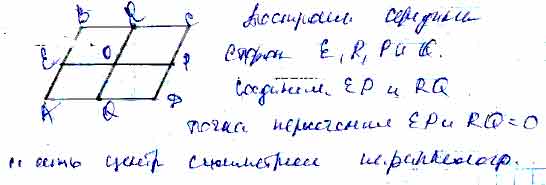 B R C
Построим середины
E O P
сторон E, R, P и Q.
Соединим EP и RQ
A Q D
точка пересечения EP и RQ = O
и есть центр симметрии параллелогр.